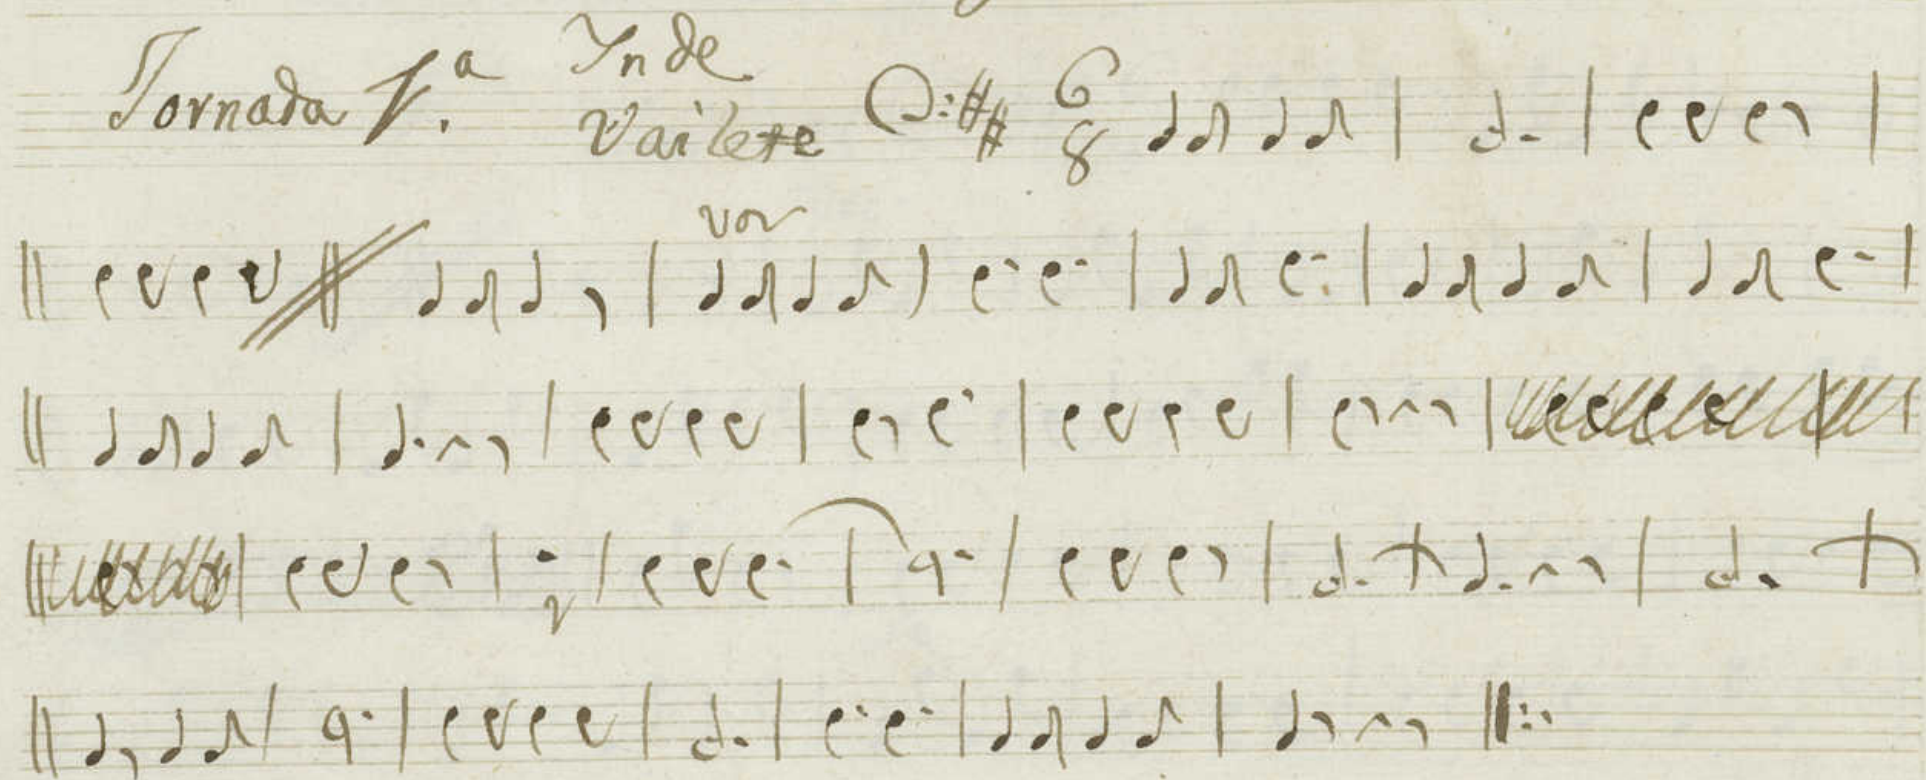 Jornada 1.ª Yn de
Vailete
6
8
voz